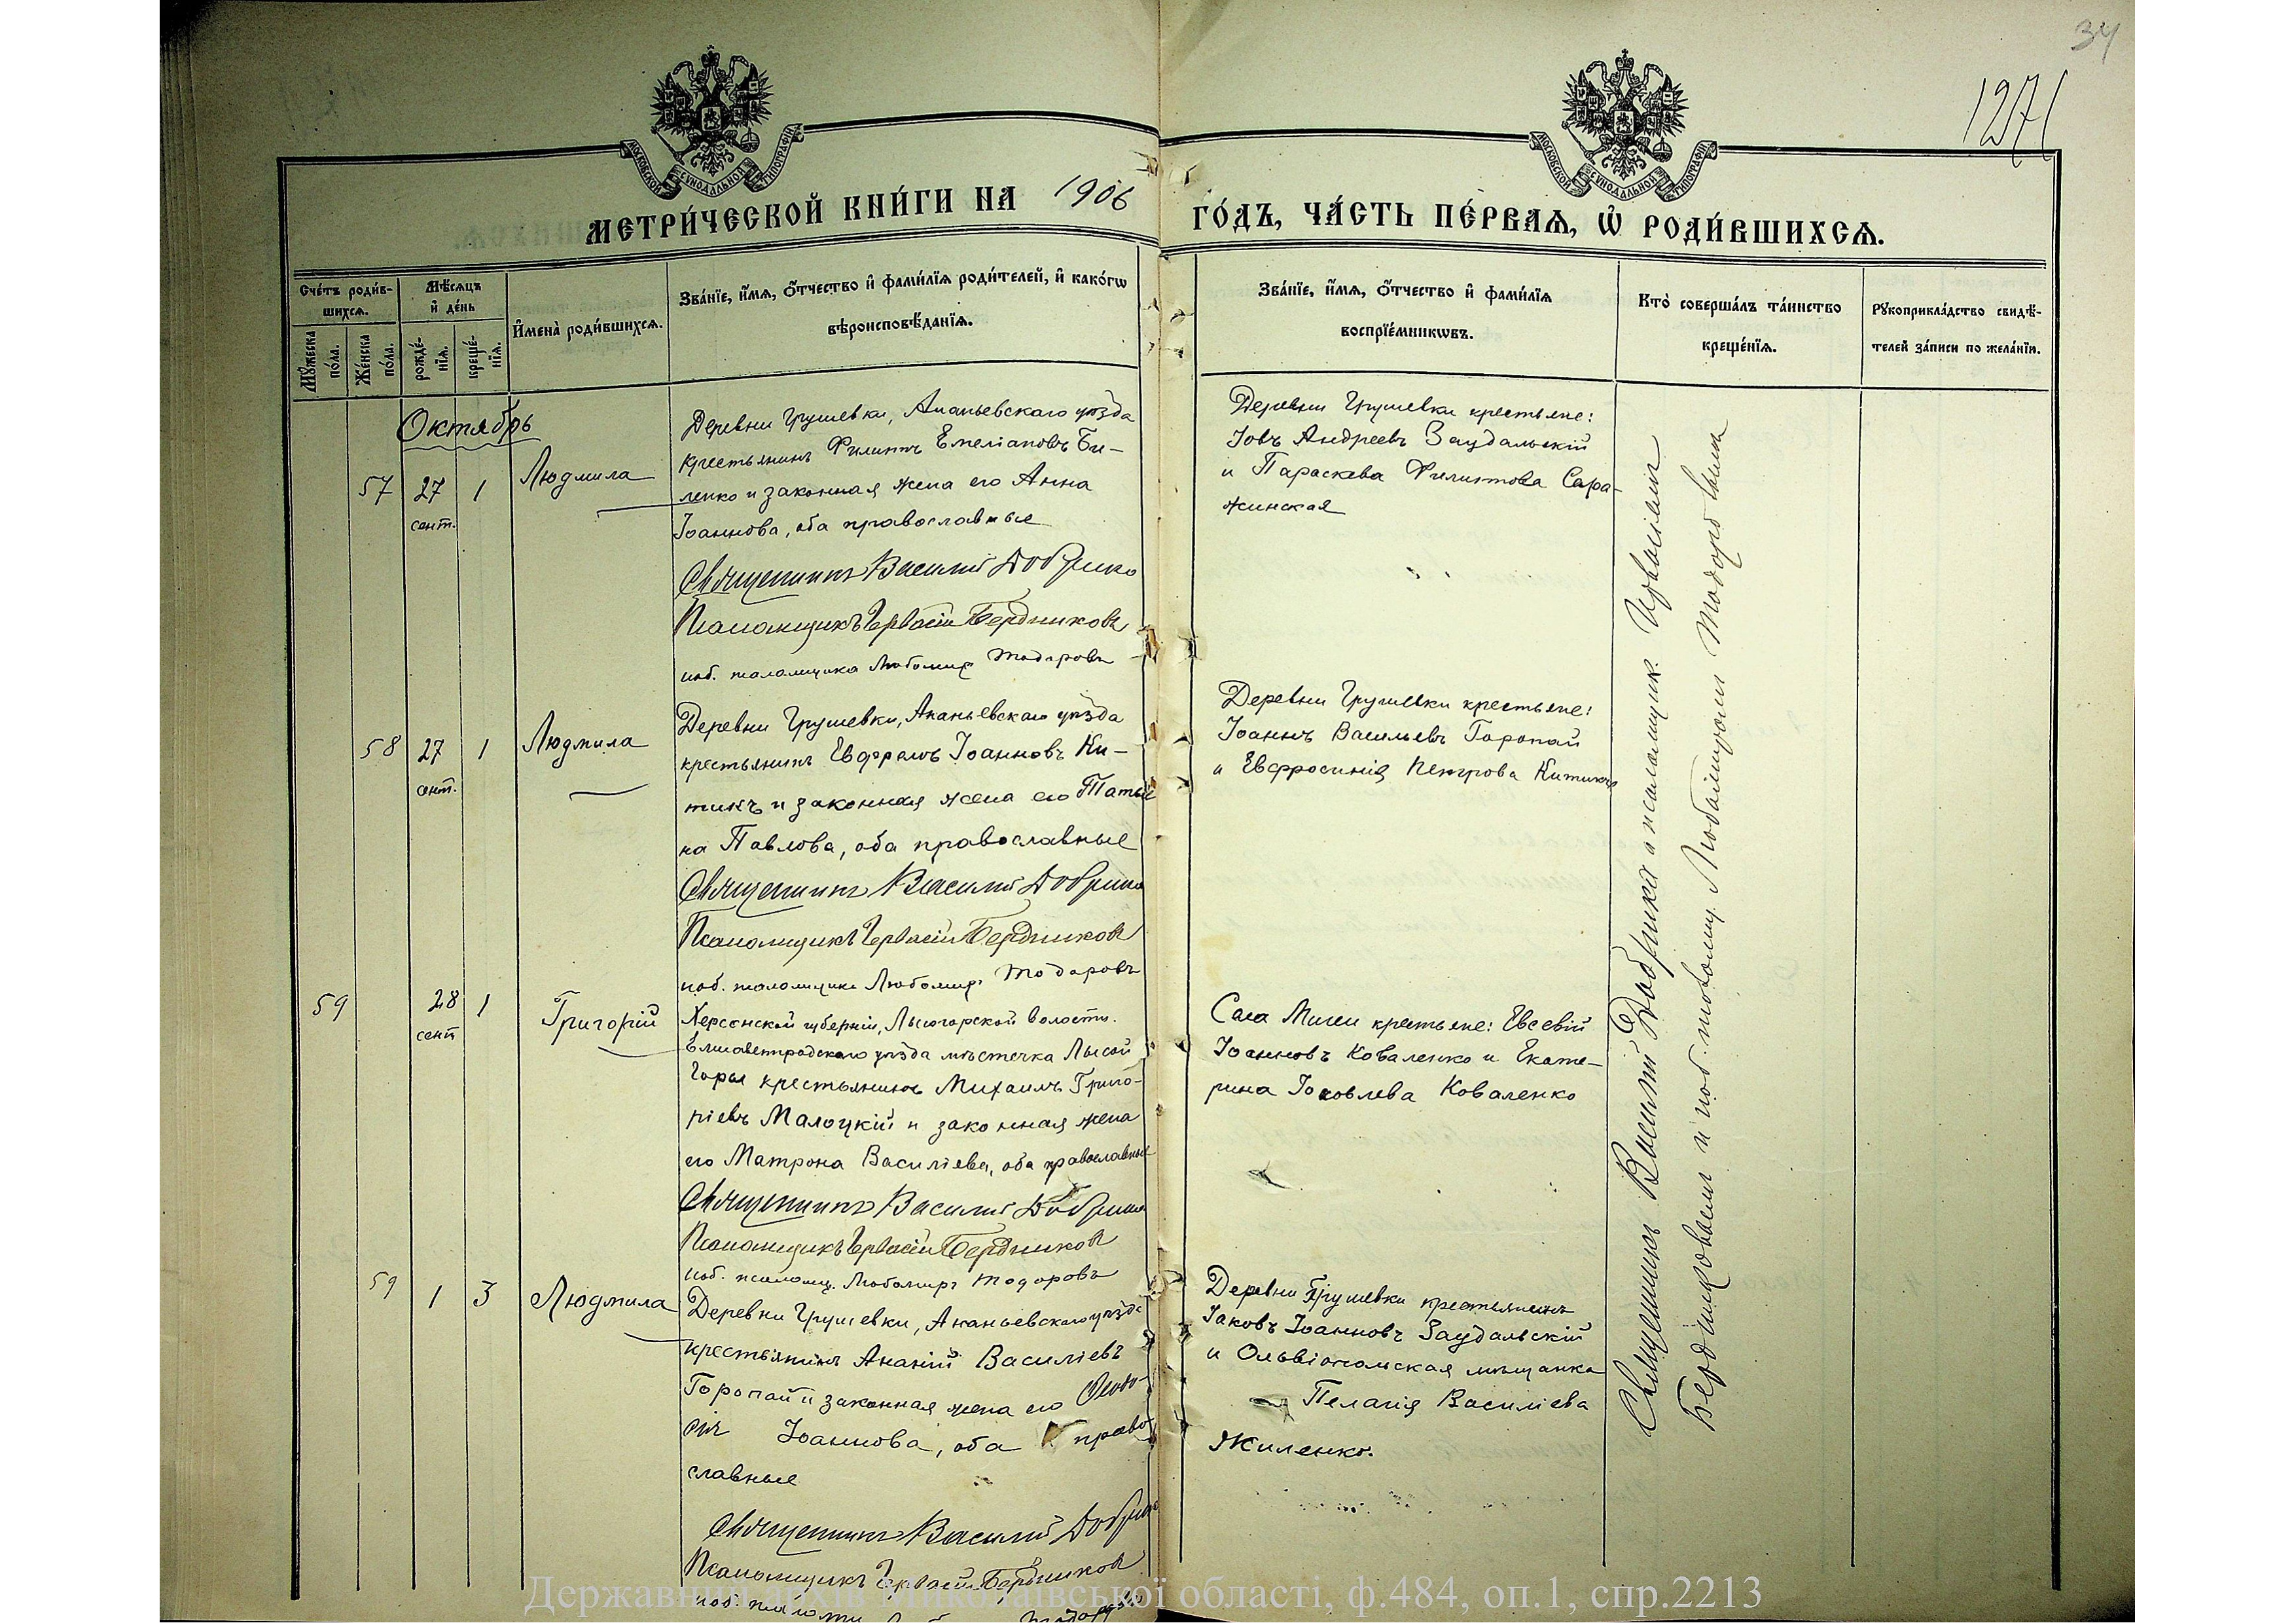 34
1271
МОСКОВСКОЙ СѴНОДАЛЬНОЙ ТИПОГРАФІИ
МОСКОВСКОЙ СѴНОДАЛЬНОЙ ТИПОГРАФІИ
МЕТРИ́ЧЕСКОЙ КНИ́ГИ НА 1906 ГО́ДЪ, ЧА́СТЬ ПЕ́РВАѦ, Ѡ҆ РОДИ́ВШИХСѦ.
Сче́тъ роди́в-
шихсѧ.
Мꙋ́жеска по́ла.
Же́нска по́ла.
Мѣ́сѧцъ и҆ де́нь
рожде́-нїѧ.
креще́-нїѧ.
И҆мена̀ роди́вшихсѧ.
Зва́нїе, и҆́мѧ, ѻ҆́тчество и҆ фами́лїѧ роди́телей, и҆ како́гѡ
вѣроисповѣ́данїѧ.
Зва́нїе, и҆́мѧ, ѻ҆́тчество и҆ фами́лїѧ
воспрїе́мникѡвъ.
Кто̀ соверша́лъ та́инство
креще́нїѧ.
Рꙋкоприкла́дство свидѣ́-
телей за́писи по жела́нїю.
Октябрь
57 27 сент. 1 Людмила
Деревни Грушевки, Ананьевскаго уѣзда
крестьянинъ Филиппъ Емеліановъ Би-
ленко и законная жена его Анна
Іоаннова, оба православные
Священникъ Василій Добрика
Псаломщикъ Гервасій Бердниковъ
исб. псаломщика Любомиръ Тодоровъ
Деревни Грушевки крестьяне:
Іовъ Андреевъ Заудальскій
и Параскева Филиппова Сара-
жинская
58 27 сент. 1 Людмила
Деревни Грушевки, Ананьевскаго уѣзда
крестьянинъ Евфремъ Іоанновъ Ки-
тикъ и законная жена его Татья
на Павлова, оба православные
Священникъ Василій Добрика
Псаломщикъ Гервасій Бердниковъ
исб. псаломщика Любомиръ Тодоровъ
Деревни Грушевки крестьяне:
Іоаннъ Васильевъ Горопай
и Евфросинія Петрова Китикъ
59 28 сент 1 Григорій
Херсонской губерніи, Лысогорской волости.
Елисаветградскаго уѣзда мѣстечка Лысой
Горы крестьянинъ Михаилъ Григо-
ріевъ Малоцкій и законная жена
его Матрона Василіева, оба православные
Священникъ Василій Добрика
Псаломщикъ Гервасій Бердниковъ
исб. псаломщ. Любомиръ Тодоровъ
Села Мигеи крестьяне: Евсевій
Іоанновъ Коваленко и Екате-
рина Іаковлева Коваленко
59 1 3 Людмила
Деревни Грушевки, Ананьевскаго уѣзда
крестьянинъ Ананій Василіевъ
Горопай и законная жена его Ѳеодо-
сія Іоаннова, оба право-
славные
Священникъ Василій Добрика
Псаломщикъ Гервасій Бердниковъ
Деревни Грушевки крестьянинъ
Іаковъ Іоанновъ Заудальскій
и Ольвіопольская мѣщанка
Пелагія Василіева
Жиленко.
Священникъ Василій Добрика и псаломщик. Гервасіемъ
Бердниковымъ и исб. псаломщ. Любомиромъ Тодоровымъ
Державний архів Миколаївської області, ф.484, оп.1, спр.2213